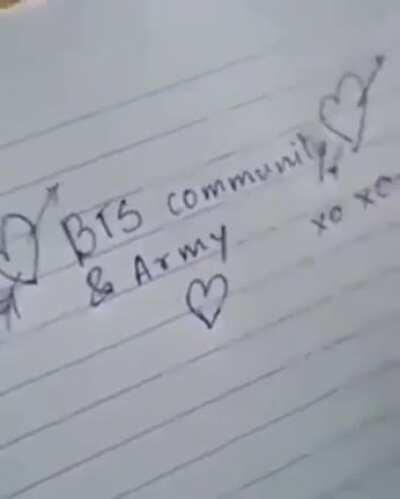 BTS community
& Army
xo xo